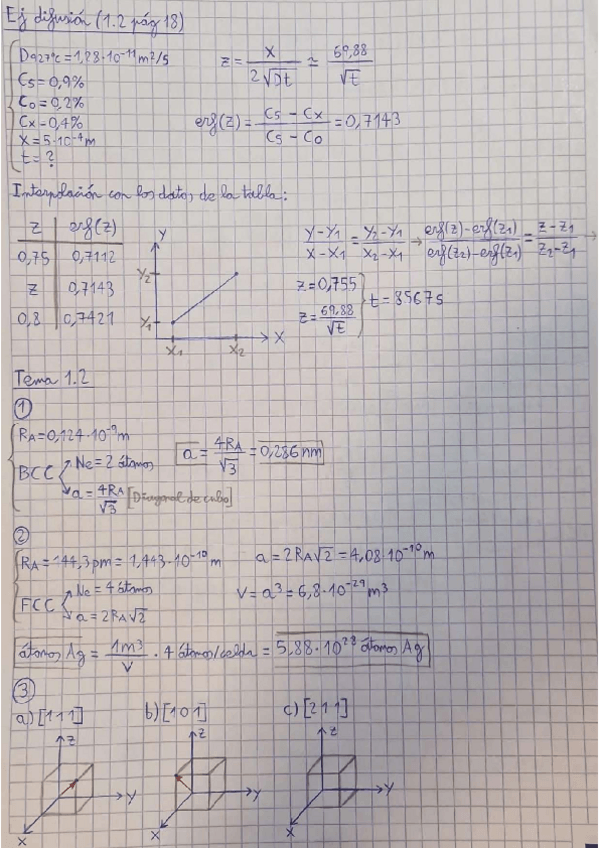 Ej difusión (1.2 pág 18)
D927ºC = 1,28·10⁻¹¹ m²/s
Cs = 0,9%
C0 = 0,2%
Cx = 0,4%
X = 5·10⁻⁴ m
t = ?
z = X / 2√Dt ≃ 69,88 / √t
erf(z) = Cs - Cx / Cs - C0 = 0,7143
Interpolación con los datos de la tabla:
z erf(z)
0,75 0,7112
z 0,7143
0,8 0,7421
Y
Y2
Y1
X1 X2 X
Y-Y1 / X-X1 = Y2-Y1 / X2-X1 → erf(z)-erf(z1) / erf(z2)-erf(z1) = z-z1 / z2-z1 →
z = 0,755
z = 69,88 / √t
t = 8567 s
Tema 1.2
1
RA = 0,124·10⁻⁹ m
BCC
Nc = 2 átomos
a = 4RA / √3 [Diagonal de cubo]
a = 4RA / √3 = 0,286 nm
2
RA = 144,3 pm = 1,443·10⁻¹⁰ m a = 2RA√2 = 4,08·10⁻¹⁰ m
FCC
Nc = 4 átomos
a = 2RA√2
V = a³ = 6,8·10⁻²⁹ m³
átomos Ag = 1m³ / V · 4 átomos/celda = 5,88·10²⁸ átomos Ag
3
a) [111] b) [101] c) [211]
Z Z Z
Y Y Y
X X X